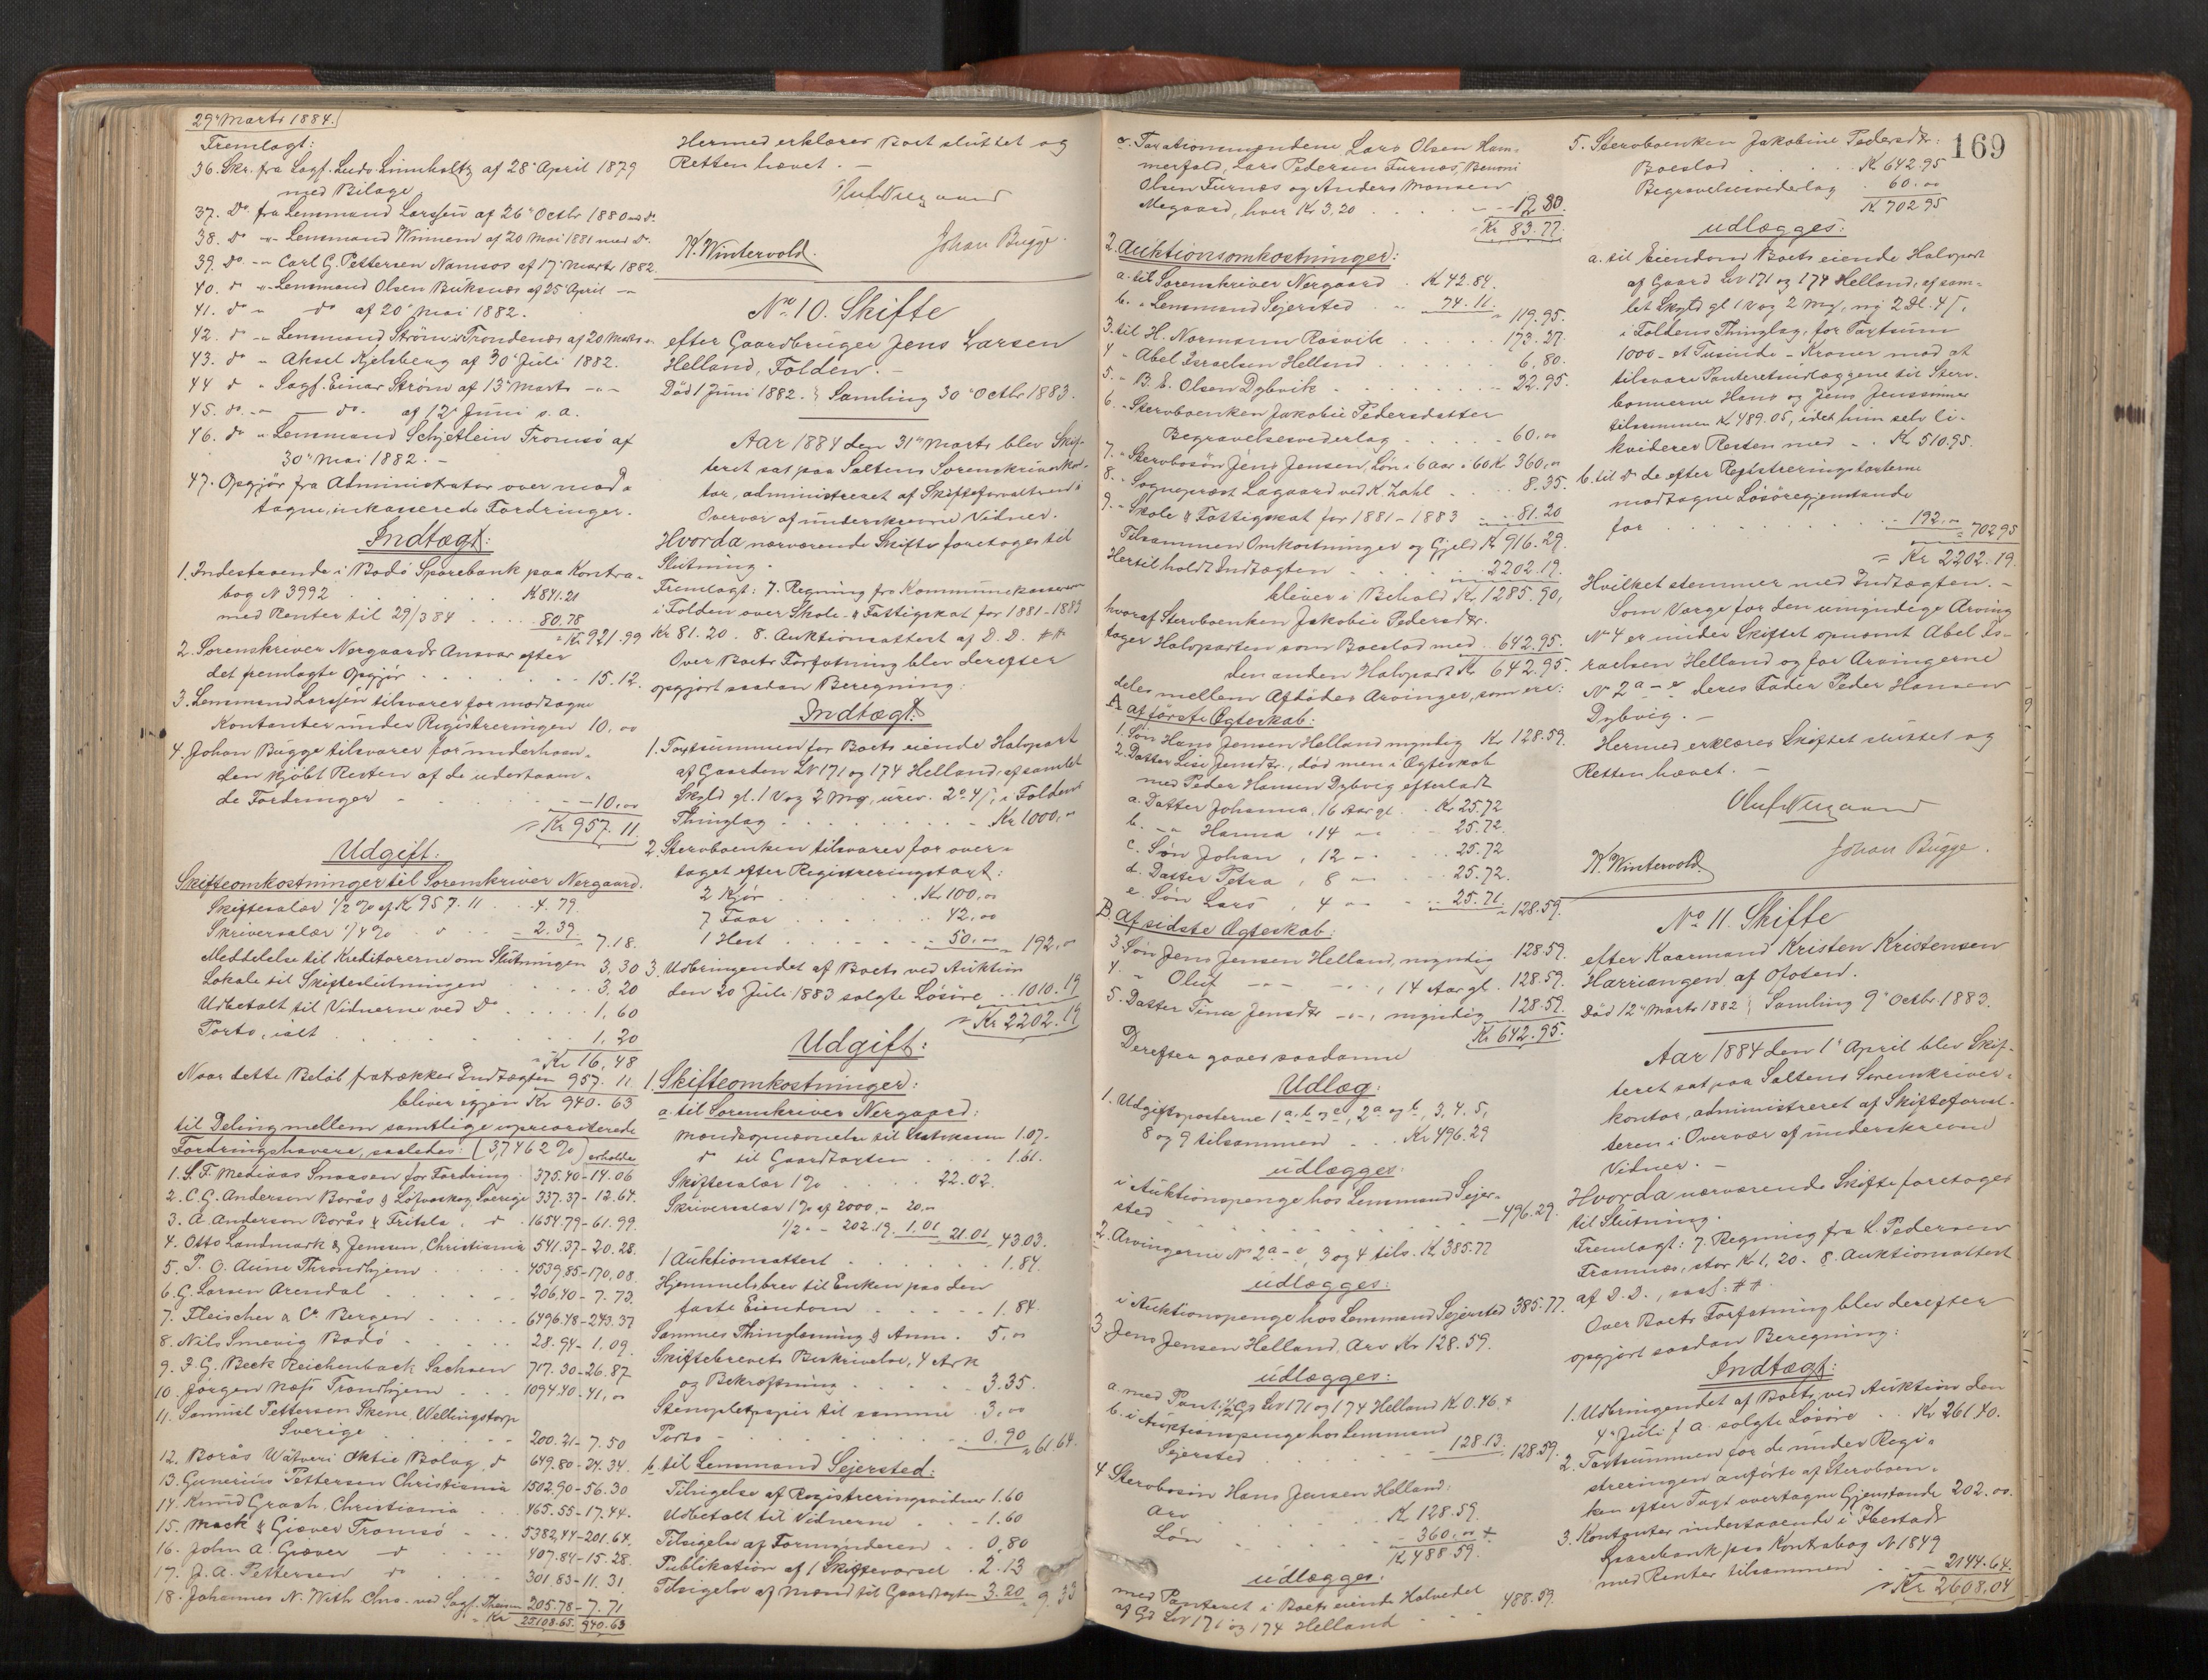 29' Marts 1884.
Fremlagt:
36. Skr. fra Sagf. Ludv. Linnholtz af 28' April 1879
med Bilage
37. Do. fra Lensmand Larssen af 26' Octbr 1880 med do.
38. do -"- Lensmand Winnem af 20 Mai 1881 med do.
39. do. -"- Carl G. Pettersen Namsos af 17' Marts 1882.
40. d " Lensmand Olsen Buksnæs af 25' April -"-
41. d " do af 20' Mai 1882.
42. d -"- Lensmand Ström i Trondenes af 20 Marts "
43. do " Aksel Kjelsberg af 30' Juli 1882.
44 d " Sagf. Einar Ström af 13' Marts -"-
45. do. -"- do. af 12' Juni s. a.
46. do " Lensmand Schjetlein Tromsö af
30' Mai 1882. -
47. Opgjör fra Administrator over mod=
tagne, inkasserede Fordringer.
Indtægt:
1. Indestaaende i Bodö Sparebank paa Kontra-
bog N 3992 . . . K 841.21
med Renter til 29/3 84 . . . 80.78
= Kr 921.99
2. Sorenskriver Nergaards Ansvar efter
det fremlagte Opgjör . . . 15.12.
3. Lensmand Larssen tilsvarer for modtagne
Kontanter under Registreringen 10,00
4. Johan Bugge tilsvarer for underhaan-
den kjöbt Resten af de udestaaen-
de Fordringer - . . . - 10,00
= Kr 957.11
Udgift:
Skifteomkostninger til Sorenskriver Nergaard.
Skiftesalær 1/2 % af Kr 957.11 . . 4.79.
Skriversalær 1/4 % . d . . - 2.39. 7.18.
Meddelelse til Kreditorerne om Slutningen 3,30
Lokale til Skifteslutningen . . . 3.20
Udbetalt til Vidnerne ved do . . . 1,60
Porto, ialt . . . 1,20
= Kr 16,48
Naar dette Belöb fratrækkes Indtægten 957.11
bliver igjen Kr 940.63
til Deling mellem samtlige uprioriterede
Fordringshavere, saaledes: (3,7462 %) erholde
1. S. F. Mediaas Snaasen for Fordring 375.40 - 14.06
2. C. G. Anderson Borås & Löfvaskog Sverige 337.37 - 12.64.
3. A. Anderson Borås & Fritsla . d . 1654.79 - 61.99.
4. Otto Landmark & Jenssen, Christiania 541.37 - 20.28.
5. T. O. Aune Throndhjem . . . 4539,85 - 170,08.
6. G. Larsen Arendal . . . 206,40 - 7.73.
7. Fleischer & Co Bergen . . . 6496.48 - 243.37
8. Nils Smevig Bodö . . . 28.94 - 1,09.
9. F. G. Beck Reichenback Sachsen 717.30 - 26.87
10. Jörgen Næss Trondhjem . . . 1094.40 - 41,00
11. Samuel Pettersen Skene, Wellingstorp
Sverige . . . 200.21 - 7.50
12. Borås Wäfveri Aktie Bolag, d 649.80 - 24.34.
13. Gunerius Pettersen Christiania 1502.90 - 56.30
14. Knud Graah, Christiania . . 465.55 - 17.44.
15. Mack & Giæver Tromsö - . . 5382,44 - 201.64.
16. John A. Giæver d . . . 407.84 - 15.28.
17. J. A. Pettersen d . . . 301,83 - 11.31.
18. Johannes N. With Chra. ved Sagf. Thesen 205.78 - 7.71
= Kr 25108.65. 940.63
Hermed erklæres Boet sluttet og
Retten hævet. -
Oluf Nergaard
K. Wintervold. Johan Bugge.
No 10. Skifte
efter Gaardbruger Jens Larsen
Helland, Folden. -
Död 1 Juni 1882. Samling 30' Octbr 1883.
Aar 1884 den 31' Marts blev Skif-
teret sat paa Saltens Sorenskriverkon-
tor, administreret af Skifteforvalteren i
Overvær af underskrevne Vidner.
Hvorda nærværende Skifte foretoges til
Slutning. -
Fremlagt: 7. Regning fra Kommunekassereren
i Folden over Skole- & Fattigskat for 1881-1883
Kr 81.20. 8. Auktionsattest af D. D. ##
Over Boets Forfatning blev derefter
opgjort saadan Beregning:
Indtægt:
1. Taxtsummen for Boets eiende Halvpart
af Gaarden LN 171 og 174 Helland, af samlet
Skyld gl. 1 Vog 2 Mg, urev. 2 D 4 S, i Foldens
Thinglag . . . Kr 1000,00
2. Stervboenken tilsvarer for over-
taget efter Registreringstaxt:
2 Kjör . . . Kr 100,00
7 Faar . . . 42,00
1 Hest . . . - 50.00 = 192,00
3. Udbringendet af Boets ved Auktion
den 20 Juli 1883 solgte Lösöre . . 1010.19
= Kr 2202.19
Udgift:
1. Skifteomkostninger:
a. til Sorenskriver Nergaard:
Mandsopnævnelse til 1.07.
d til Gaardtaxten . . . 1.61.
Skiftesalær 1 % . . . 22.02.
Skriversalær 1 % af 2000,- 20,00
1/2 " - 202.19. 1.01 21.01 43.03.
1 Auktionsattest . . . 1.84.
Hjemmelsbrev til Enken paa den
faste Eiendom . . . 1.84.
Sammes Thinglæsning & Anm. . 5,00
Skiftebrevets Beskrivelse, 4 Ark
og Bekræftning . . . 3.35.
Stempletpapir til samme . 3,00
Porto - . . . 0,90 = 61.64.
b. til Lensmand Sejersted:
Tilsigelse af Registreringsvidner 1.60
Udbetalt til Vidnerne . . - 1.60
Tilsigelse af Formynderen . . 0,80
Publikation af 1 Skiftevarsel . 2.13
Tilsigelse af Mænd til Gaardtaxten 3.20 = 9.33
169
c. Taxationsmændene Lars Olsen Ham-
merfald, Lars Pedersen Furnæs, Benoni
Olsen Furnæs og Anders Monsen
Megaard, hver Kr 3,20 . . . - 12.80.
= Kr 83.77.
2. Auktionsomkostninger:
a. til Sorenskriver Nergaard . K 42.84.
b. " Lensmand Sejersted " 77.11 = 119.95.
3. til H. Normann Rösvik . . . 173.27.
4 " Abel Israelsen Helland . . . 6,80.
5. " B. E. Olsen Dybvik . . . 22.95.
6 " Stervboenken Jakobie Pedersdatter
Begravelsesvederlag . . . - 60.00
7. " Stervbosön Jens Jensen, Lön i 6 Aar à 60 Kr 360,00
8. " Sogneprest Lagaard ved K. Zahl . . . 8.35.
9. " Skole & Fattigskat for 1881-1883 - 81.20
Tilsammen Omkostninger og Gjeld Kr 916.29.
Hertil holdt Indtægten . . . 2202.19.
bliver i Behold Kr 1285.90,
hvoraf Stervboenken Jakobie Pedersdtr.
tager Halvparten som Boeslod med . 642.95.
den anden Halvpart Kr 642.95.
deles mellem Afdödes Arvinger, som ere:
A. af förste Ægteskab:
1. Sön Hans Jensen Helland myndig Kr 128.59.
2. Datter Lise Jensdtr., död men i Ægteskab
med Peder Hansen Dybvig efterladt
a. Datter Johanna, 16 Aar gl. . Kr 25.72
b. -"- Hanna , 14 -"- . . 25.72.
c. Sön Johan , 12 -"- . . 25.72
d. Datter Petra , 8 -"- . . 25.72.
e. Sön Lars , 4 -"- . . 25.71. = 128.59.
B. Af sidste Ægteskab:
3. Sön Jens Jensen Helland, myndig 128.59.
4. " Oluf -"- -"- , 14 Aar gl. . 128.59.
5. Datter Tina Jensdtr -"-, myndig 128.59.
Kr 642.95.
Derefter gaves saadanne
Udlæg:
1. Udgiftsposterne 1 a, b og c, 2 a og b, 3, 4. 5,
8 og 9 tilsammen . . . Kr 496.29
udlægges:
i Auktionspenge hos Lensmand Sejer-
sted . . . - 496.29.
2. Arvingerne No 2 a - e, 3 og 4 tils. K 385.77
udlægges:
i Auktionspenge hos Lensmand Sejersted 385.77.
3 Jens Jensen Helland, Arv Kr 128.59.
udlægges:
a. med Pant i 1/2 Gd LN 171 og 174 Helland K 0.46. +
b. i Auktionspenge hos Lensmand
Sejersted . . . - 128.13. 128.59.
4 Stervbosön Hans Jensen Helland:
Arv . . . K 128.59.
Lön . . . - 360,00 +
K 488.59.
udlægges:
med Panteret i Boets eiende Halvedel
af Gd LN 171 og 174 Helland . . . 488.59.
5. Stervboenken Jakobine Pedersdtr:
Boeslod . . . Kr 642.95
Begravelsesvederlag . 60.00
Kr 702 95
udlægges:
a. til Eiendom Boets eiende Halvpart
af Gaard LN 171 og 174 Helland, af sam-
let Skyld gl 1 Vog 2 Mg, ny 2 Dl. 4 S,
i Foldens Thinglag, for Taxtsum
1000 - et Tusinde - Kroner mod at
tilsvare Panteretsudlæggene til Sterv-
bosönnerne Hans og Jens Jenssönner
tilsammen Kr 489.05, idet hun selv li-
kviderer Resten med . . Kr 510.95.
b. til do de efter Registreringstaxterne
modtagne Lösöregjenstande
for . . . - 192.00 = 702 95
= Kr 2202.19.
Hvilket stemmer med Indtægten. -
Som Værge for den umyndige Arving
No 4 er under Skiftet opnævnt Abel Is-
raelsen Helland og for Arvingerne
No 2 a - e deres Fader Peder Hansen
Dybvig. -
Hermed erklæres Skiftet sluttet og
Retten hævet. -
Oluf Nergaard
K. Wintervold. Johan Bugge.
No 11. Skifte
efter Kaarmand Kristen Kristensen
Harriangen af Ofoten.
Död 12' Marts 1882 Samling 9' Octbr. 1883.
Aar 1884 den 1' April blev Skif-
teret sat paa Saltens Sorenskriver-
kontor, administreret af Skifteforval-
teren i Overvær af underskrevne
Vidner. -
Hvorda nærværende Skifte foretoges
til Slutning.
Fremlagt: 7. Regning fra L. Pedersen
Framnæs, stor K 1,20. 8. Auktionsattest
af D. D., ##.
Over Boets Forfatning blev derefter
opgjort saadan Beregning:
Indtægt:
1. Udbringendet af Boets ved Auktion den
4' Juli f A. solgte Lösöre . . Kr 261.40.
2. Taxtsummen for de under Regi-
streringen anförte af Stervboen-
ken efter Taxt overtagne Gjenstande 202.00.
3. Kontanter indestaaende i Ibestads
Sparebank paa Kontrabog N 1849
med Renter tilsammen . . - 2144.64.
= Kr 2608.04